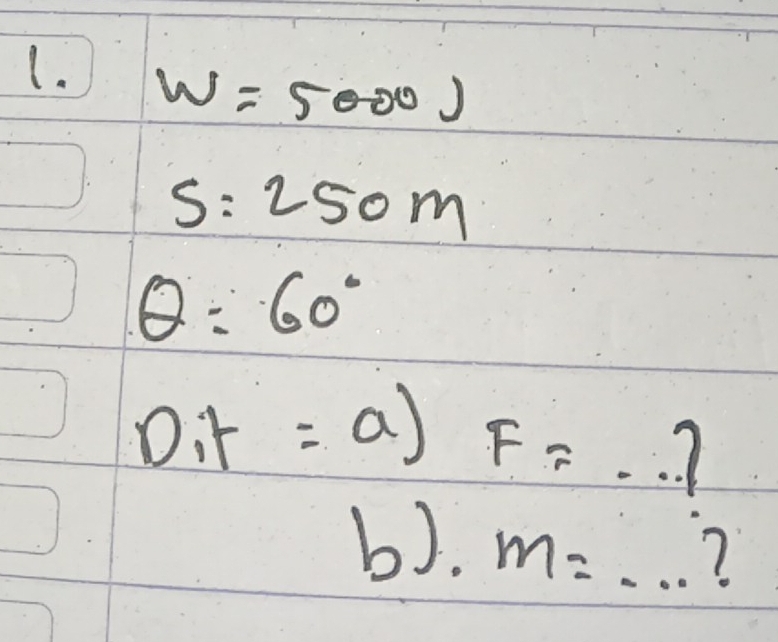 1. W = 5000 J
S = 250 m
θ = 60°
Dit = a) F = ...?
b). m = ....?